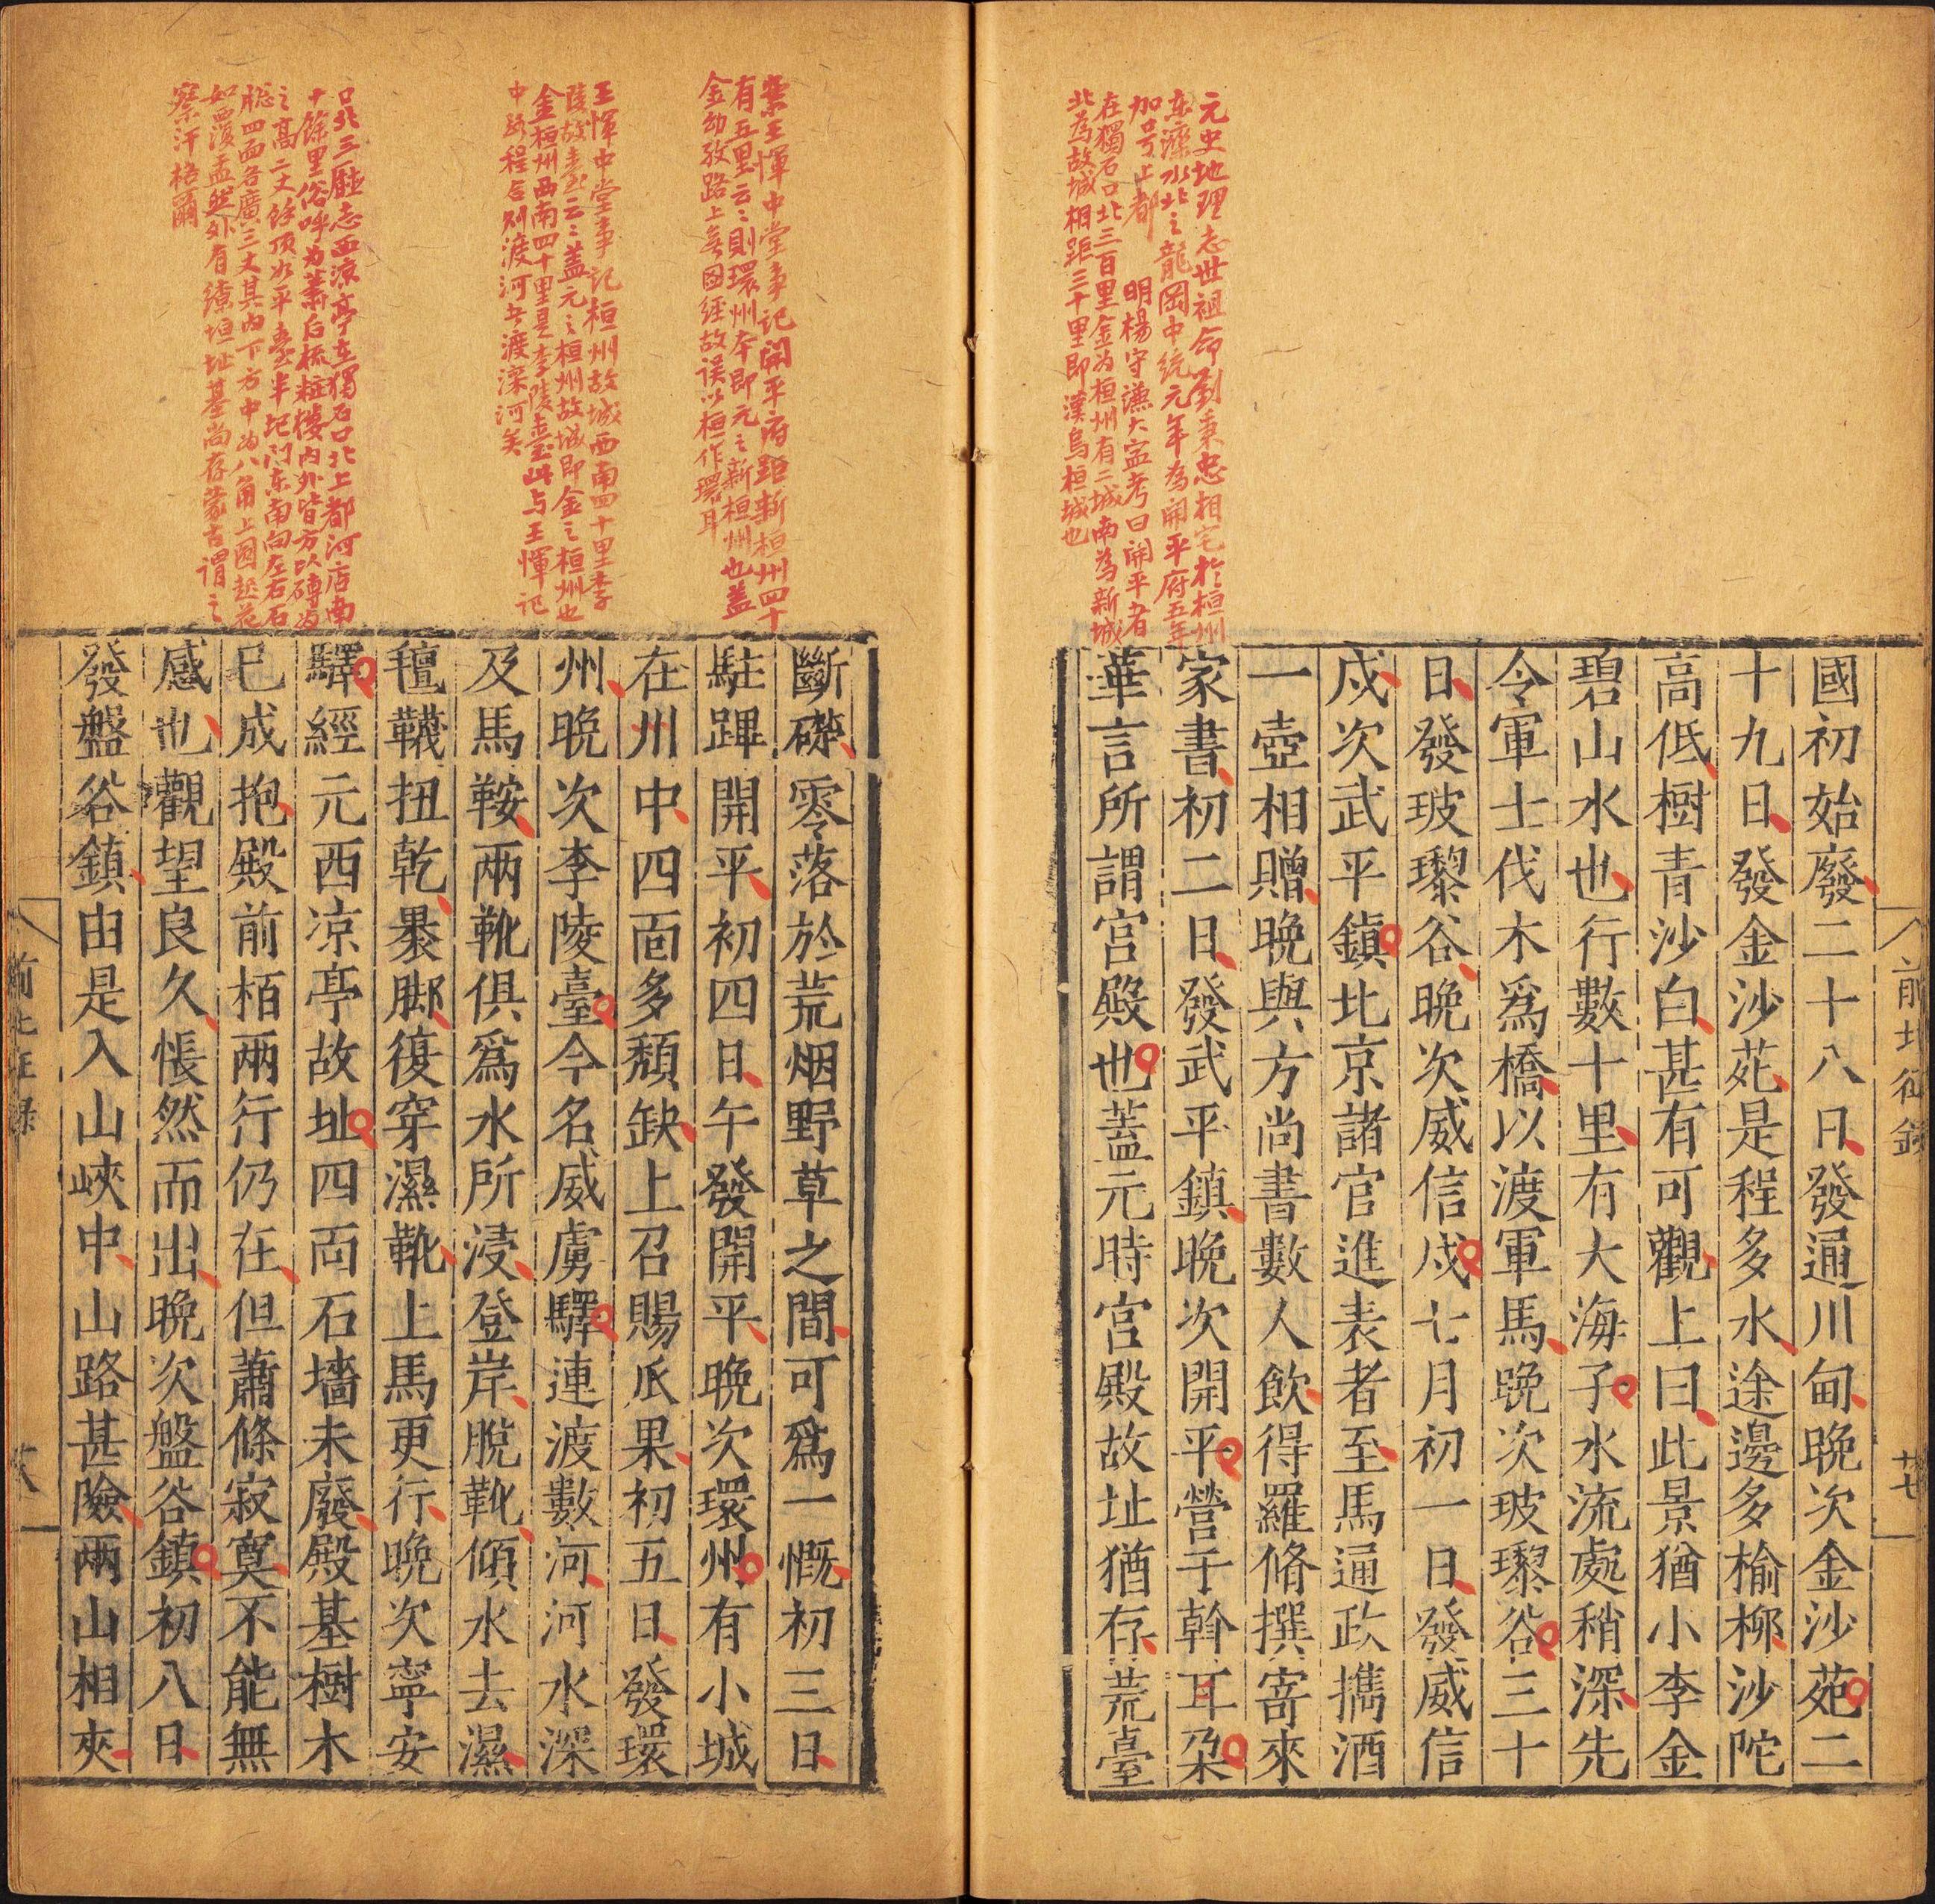 元史地理志世祖命劉秉忠相宅於桓州
东灤水北之龍岡中統元年為開平府五年
加号上都 明楊守謙大寧考曰開平者
在獨石口北三百里金为桓州有二城南為新城
北為故城相距三十里即漢烏桓城也
國初始廢二十八日發通川甸晚次金沙苑二
十九日發金沙苑是程多水途邊多榆柳沙陀
高低樹青沙白甚有可觀上曰此景猶小李金
碧山水也行數十里有大海子水流處稍深先
令軍士伐木爲橋以渡軍馬晩次玻瓈谷三十
日發玻瓈谷晚次威信戍七月初一日發威信
戍次武平鎮北京諸官進表者至馬通政攜酒
一壺相贈晚與方尚書數人飲得羅脩撰寄來
家書初二日發武平鎮晚次開平營于斡耳朶
華言所謂宮殿也蓋元時宮殿故址猶存荒臺
前北征錄
廿七
案王惲中堂事记開平府距新桓州四十
有五里云云則環州本即元之新桓州也盖
金幼孜路上无图经故误以桓作環耳
王惲中堂事记桓州故城西南四十里李
陵故臺云云盖元之桓州故城即金之桓州也
金桓州西南四十里是李陵臺此与王惲记
中路程合别渡河失渡滦河矣
口北三廳志西凉亭在獨石口北上都河店南
十馀里俗呼为萧后梳粧樓内外皆方以磚为
之高二丈馀顶以平臺半圮门东南向左右石
牎四面各廣三丈其内下方中为八角上圆趂花
如西洋盂然外有缭垣址基尚存蒙古謂之
察汗格爾
斷礎零落於荒烟野草之間可爲一慨初三日
駐蹕開平初四日午發開平晚次環州有小城
在川中四面多頹缺上召賜瓜果初五日發環
州晚次李陵臺今名威虜驛連渡數河河水深
及馬鞍兩靴俱爲水所浸登岸脫靴傾水去濕
氊韈扭乾暴脚復穿濕靴上馬更行晚次寧安
驛經元西凉亭故址四面石墻未廢殿基樹木
已成抱殿前栢兩行仍在但蕭條寂寞不能無
感也觀望良久悵然而出晚次盤谷鎮初八日
發盤谷鎮由是入山峽中山路甚險兩山相夾
前北征錄